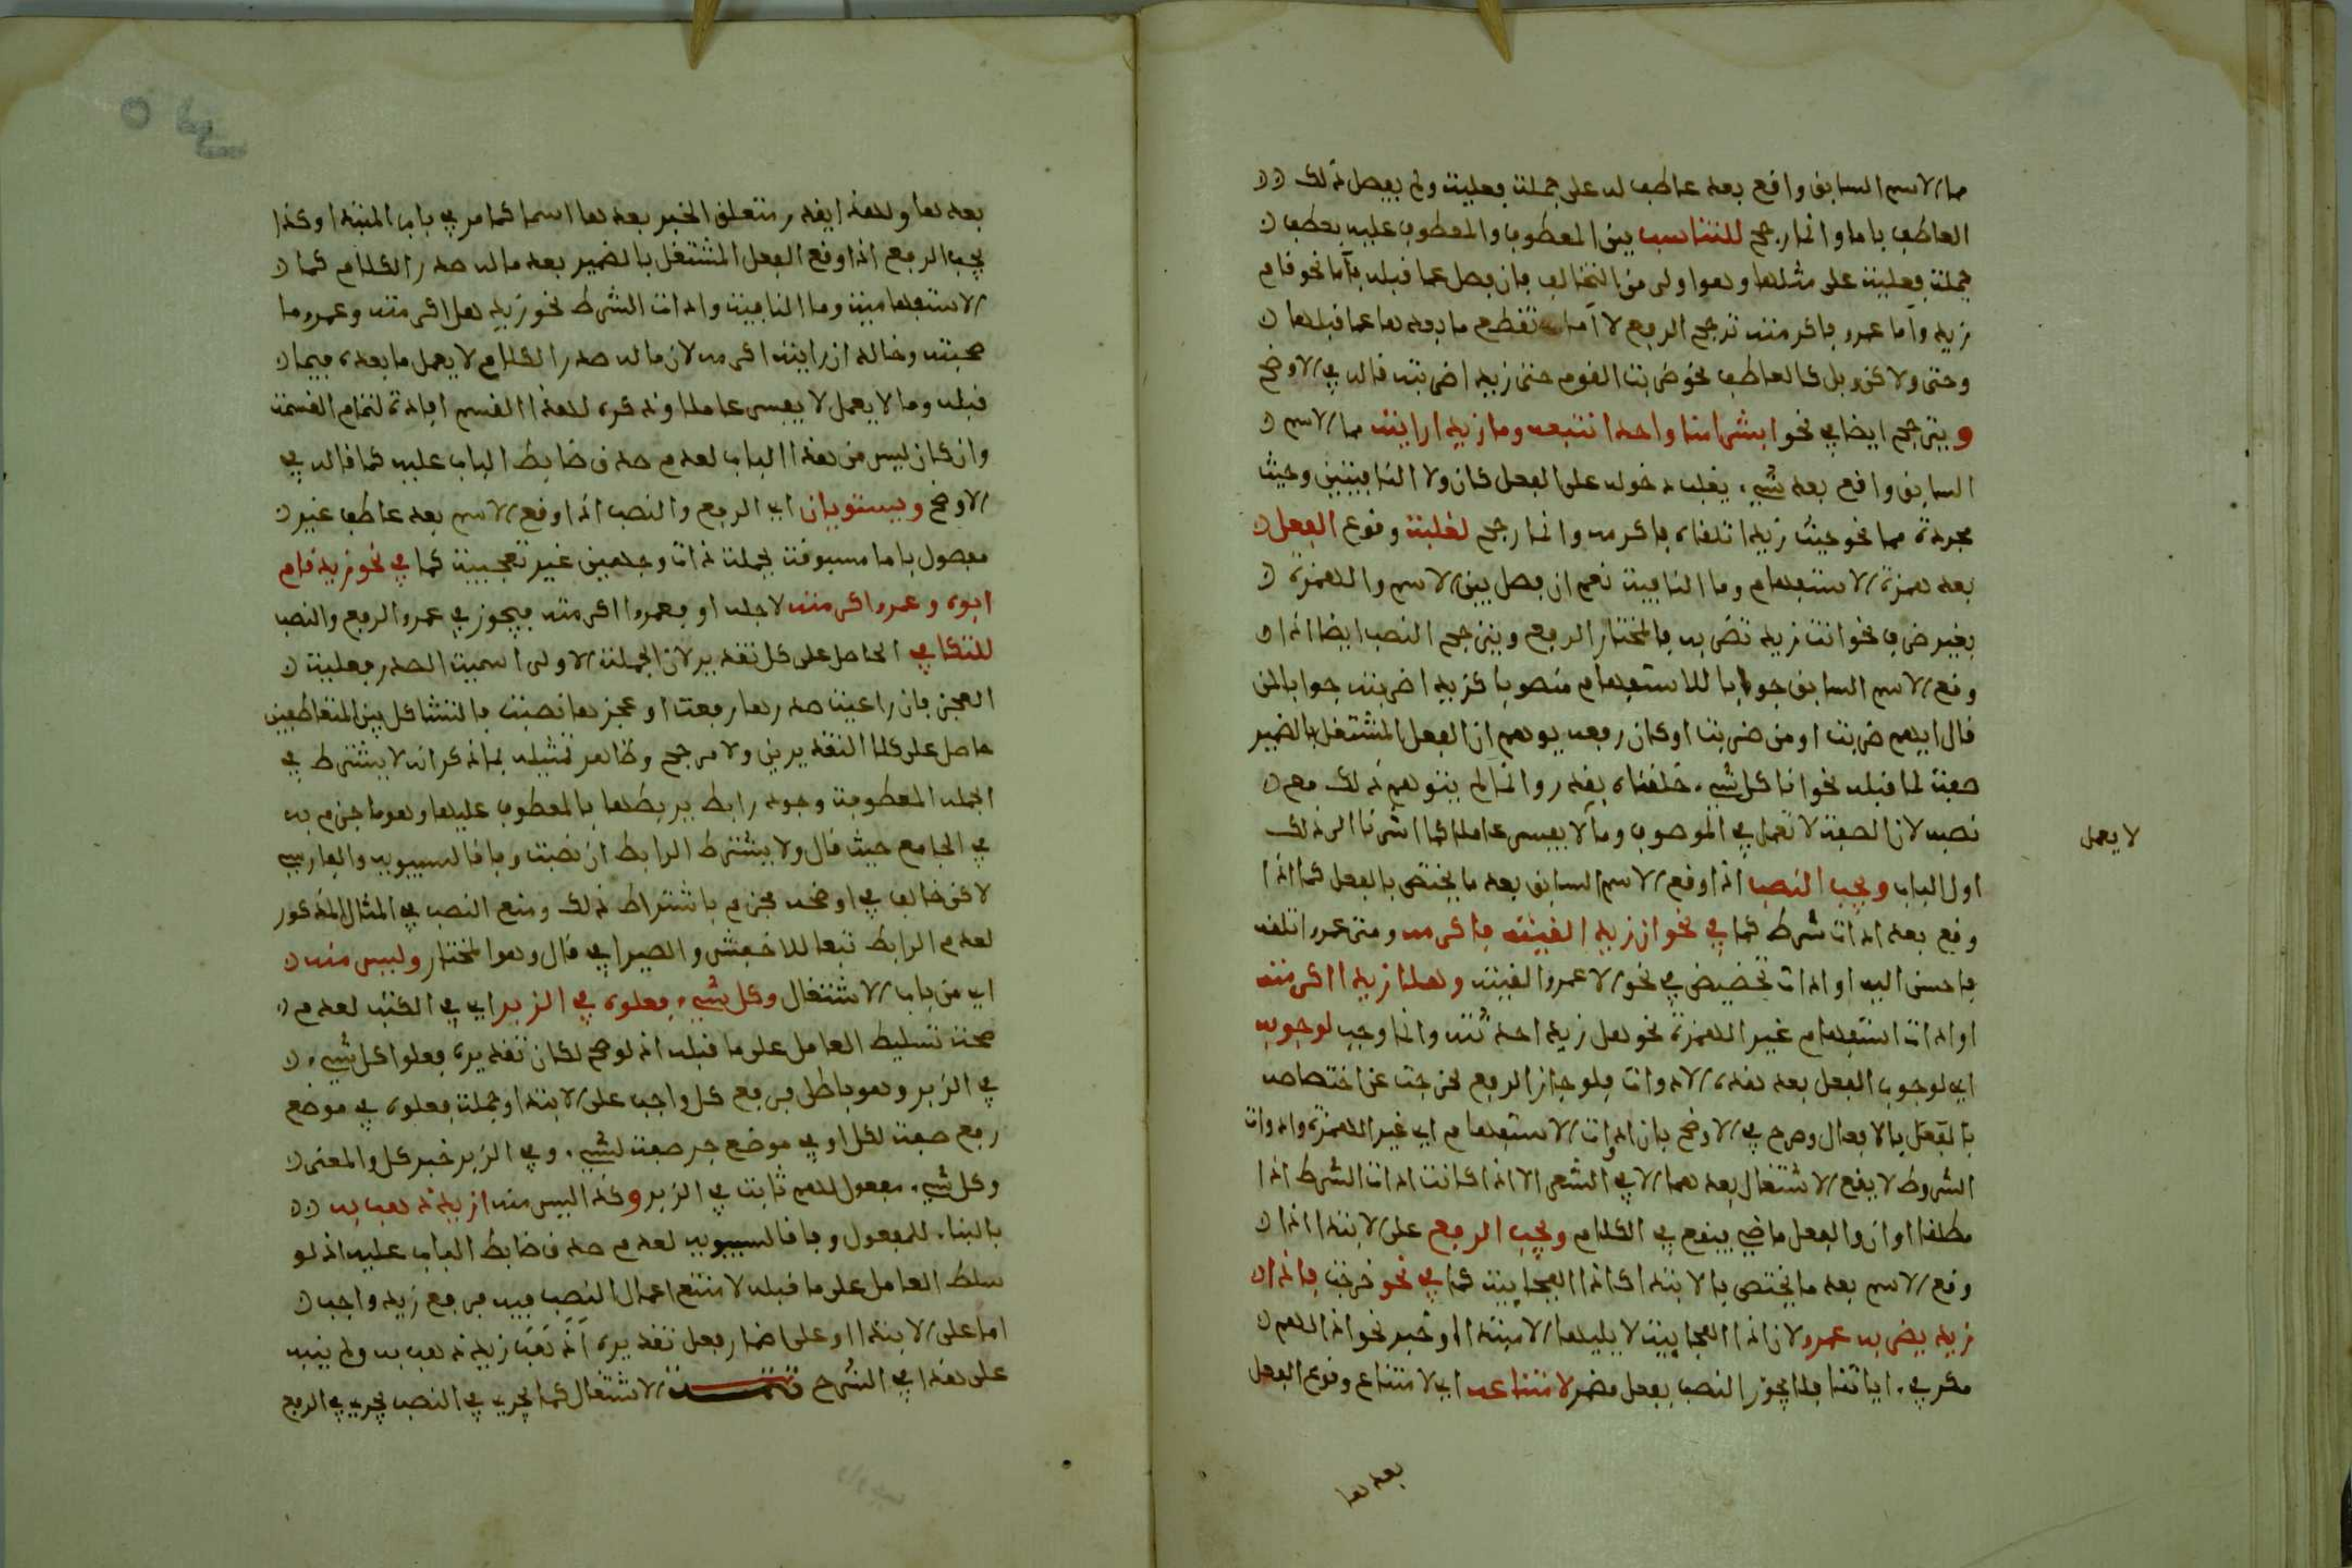 مما الاسم السابق واقع بعد عاطف له على جملة فعلية ولم يفصل ذلك
العاطف باما وانما رجح للتناسب بين المعطوف والمعطوف عليه بعطف
جملة فعلية على مثلها وهو اولى من التخالف فان فصل عما قبله بأما نحو قام
زيد وأما عمرو فاكرمته ترجح الرفع لا أما تقطع ما بعدها عما قبلها
وحتى ولاكن وبل كالعاطف نحو ضربت القوم حتى زيدا ضربته قاله في الاوضح
ويترجح ايضا في نحو ابشرا منا واحدا نتبعه وما زيدا رايته مما الاسم
السابق واقع بعد شيء يغلب دخوله على الفعل كان ولا النافيتين وحيث
مجردة مما نحو حيث زيدا تلقاه فاكرمه وانما رجح لغلبة وقوع الفعل
بعد همزة الاستفهام وما النافية نعم ان فصل بين الاسم والهمزة
بغير ظرف نحو اانت زيد تضربه فالمختار الرفع ويترجح النصب ايضا اذا
وقع الاسم السابق جوابا للاستفهام منصوبا كزيدا ضربته جوابا لمن
قال ايهم ضربت او من ضربت او كان رفعه يوهم ان الفعل المشتغل بالضمير
صفة لما قبله نحو انا كل شيء خلقناه بقدر وانما لم يتوهم ذلك مع
نصبه لان الصفة لا تعمل في الموصوف وما لا يعمل لا يفسر عاملا كما اشرنا الى ذلك
اول الباب ويجب النصب اذا وقع الاسم السابق بعد ما يختص بالفعل كما اذا
وقع بعد ادات شرط كما في نحو ان زيدا لقيته فاكرمه ومتى عمرو اتلقه
فاحسن اليه او ادات تحضيض في نحو الا عمروا لقيته وهلا زيدا اكرمته
او ادات استفهام غير الهمزة نحو هل زيدا حدثته وانما وجب لوجوبه
اي لوجوب الفعل بعد هذه الادوات فلو جاز الرفع لخرجت عن اختصاصه
بالفعل بالافعال وصرح في الاوضح بان ادوات الاستفهام اي غير الهمزة وادوات
الشروط لا يقع الاشتغال بعدهما الا في الشعر الا اذا كانت ادات الشرط اذا
مطلقا او ان والفعل ماضي فيقع في الكلام ويجب الرفع على الابتداء اذا
وقع الاسم بعد ما يختص بالابتدا كاذا الفجايية كما في نحو خرجت فاذا
زيد يضربه عمرو لان اذا الفجايية لا يليها الا مبتدا او خبر نحو اذا لهم
مكر في اياتنا فلا يجوز النصب بفعل مضمر لامتناعه اي لامتناع وقوع الفعل
لا يعمل
بعدها
بعدها ولهذا يقدر متعلق الخبر بعدها اسما كما مر في باب المبتدا وكذا
يجب الرفع اذا وقع الفعل المشتغل بالضمير بعد ماله صدر الكلام كما
الاستفهامية وما النافية وادات الشرط نحو زيد هل اكرمته وعمرو ما
صحبته وخالد ان رايته اكرمه لان ماله صدر الكلام لا يعمل ما بعده فيما
قبله وما لا يعمل لا يفسر عاملا وذكره لهذا القسم افادة لتمام القسمة
وان كان ليس من هذا الباب لعدم صدق ضابط الباب عليه كما قاله في
الاوضح ويستويان اي الرفع والنصب اذا وقع الاسم بعد عاطف غير
مفصول باما مسبوقة بجملة ذات وجهين غير تعجبية كما في نحو زيد قام
ابوه وعمرو اكرمته لاجله او فعمروا اكرمته فيجوز في عمرو الرفع والنصب
للتكافي الحاصل على كل تقدير لان الجملة الاولى اسمية الصدر فعلية
العجز فان راعيت صدرها رفعت او عجزها نصبت فالتشاكل بين المتعاطفين
حاصل على كلا التقديرين ولا مرجح وظاهر تمثيله بما ذكر انه لا يشترط في
الجملة المعطوفة وجود رابط يربطها بالمعطوف عليها وهو ما جزم به
في الجامع حيث قال ولا يشترط الرابط ان نصبت وفاقا لسيبويه والفارسي
لاكن خالف في اوضحه فجزم باشتراط ذلك ومنع النصب في المثال المذكور
لعدم الرابط تبعا للاخفش والصيرافي قال وهو المختار وليس منه
اي من باب الاشتغال وكل شيء فعلوه في الزبر اي في الكتب لعدم
صحة تسليط العامل على ما قبله اذ لو صح لكان تقديره فعلوا كل شيء
في الزبر وهو باطل فرفع كل واجب على الابتدا وجملة فعلوه في موضع
رفع صفة لكل او في موضع جر صفة لشيء وفي الزبر خبر كل والمعنى
وكل شيء مفعول لهم ثابت في الزبر وكذا ليس منه ازيد ذهب به
بالبناء للمفعول وفاقا لسيبويه لعدم صدق ضابط الباب عليه اذ لو
سلط العامل على ما قبله لامتنع اعمال النصب فيه فرفع زيد واجب
اما على الابتدا او على اضمار فعل تقديره أذهب زيد ذهب به ولم ينبه
على هذا في الشرح تتمة الاشتغال كما يجري في النصب يجري في الرفع